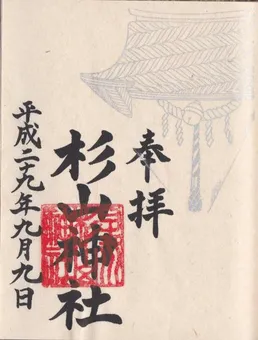 奉拝
杉山神社
平成二九年九月九日